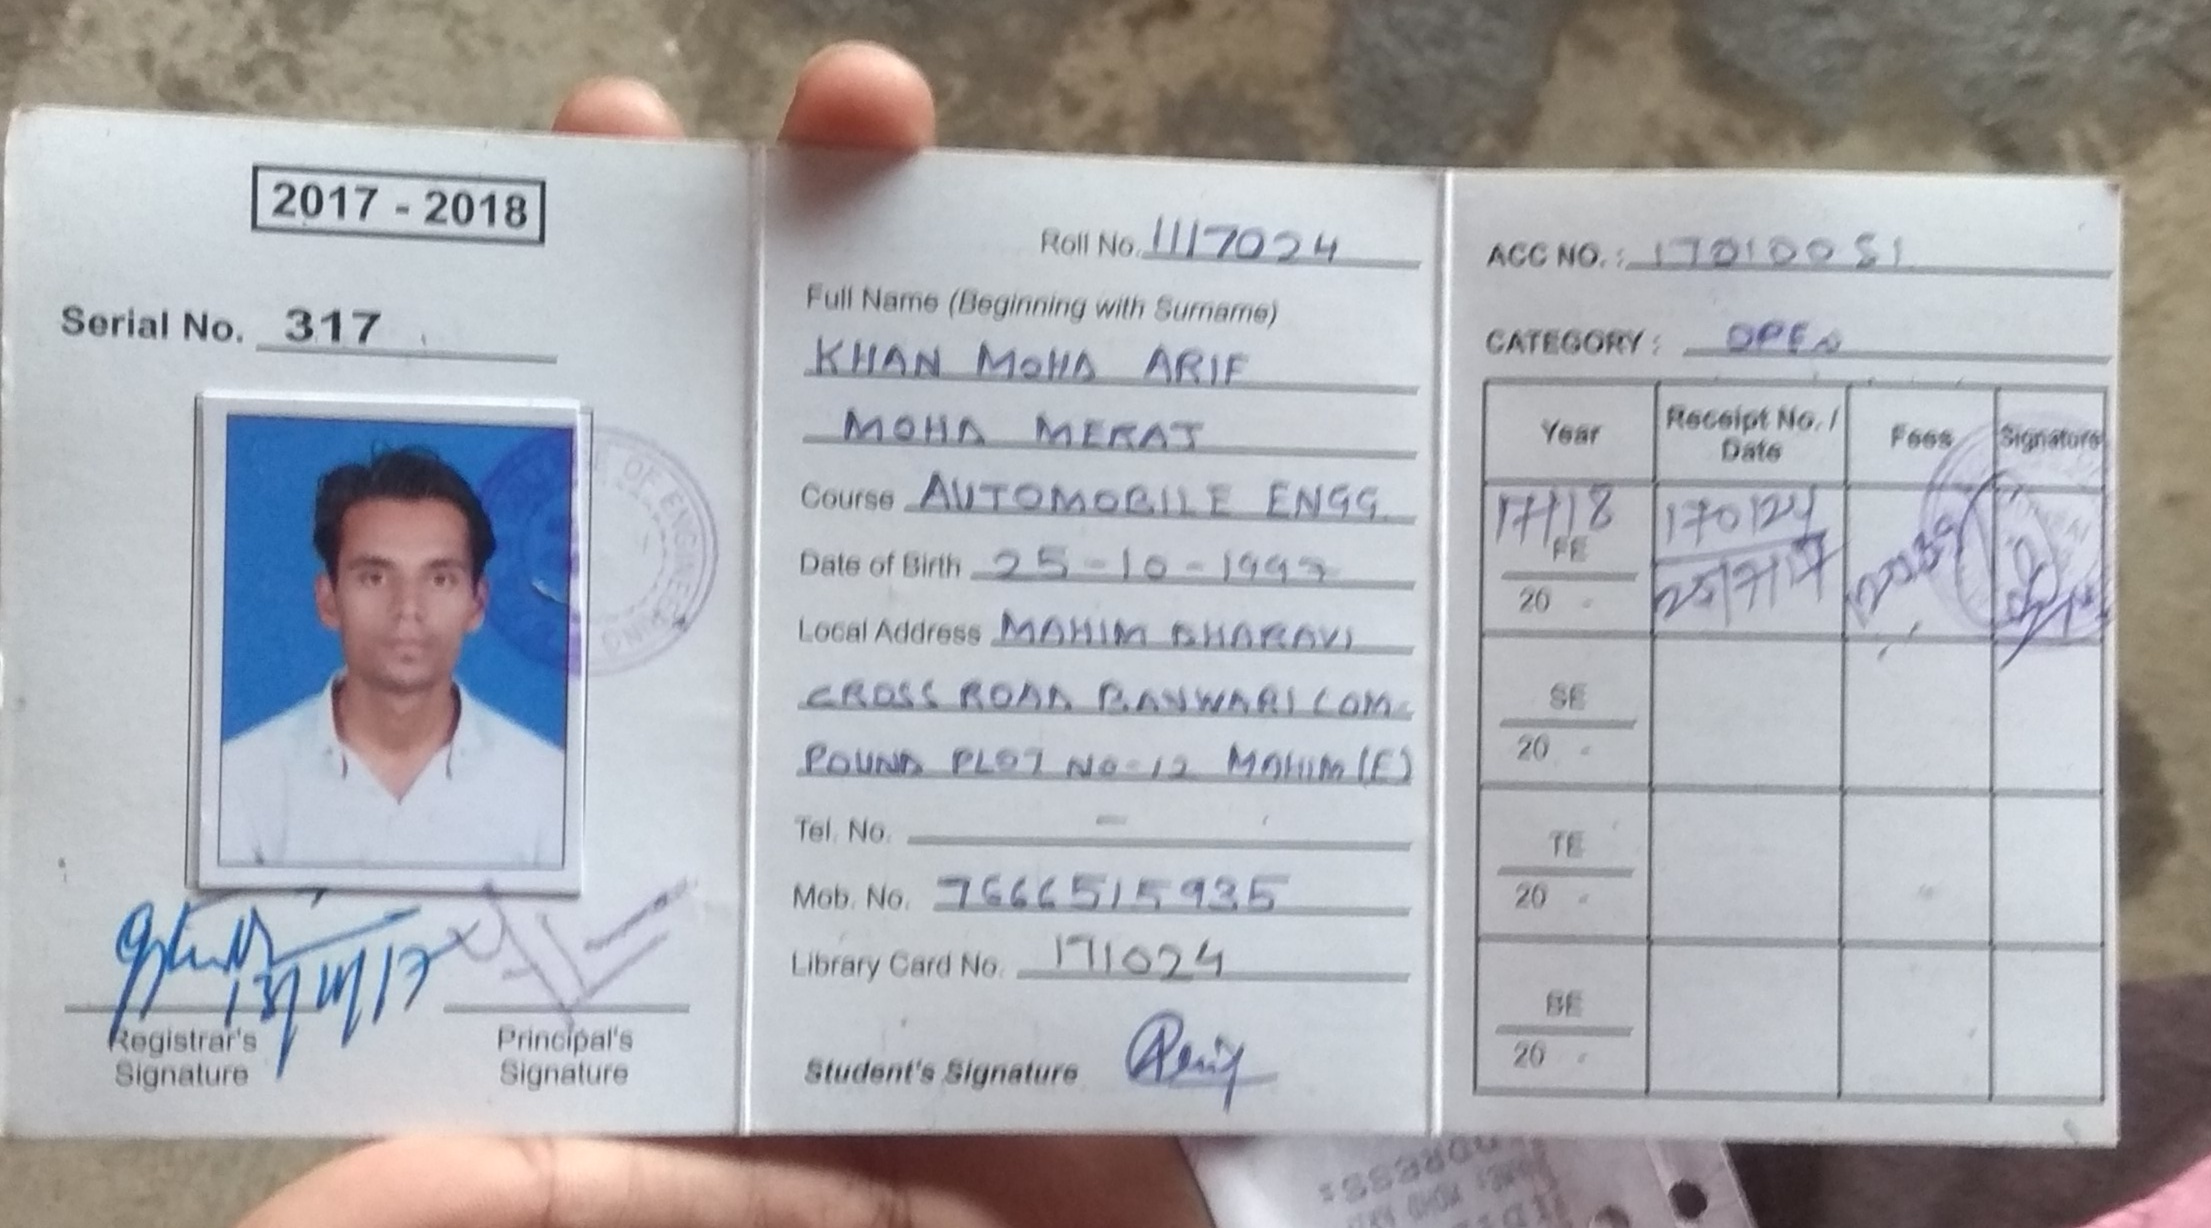 2017 - 2018
Serial No. 317
OF ENGINEERING
Registrar's
Signature
13/11/17
Principal's
Signature
Roll No. 1117024
Full Name (Beginning with Surname)
KHAN MOHD ARIF
MOHD MERAJ
Course AUTOMOBILE ENGG.
Date of Birth 25-10-1997
Local Address MAHIM DHARAVI
CROSS ROAD BANWARI COM-
POUND PLOT NO-12 MAHIM (E)
Tel. No. -
Mob. No. 7666515935
Library Card No. 171024
Student's Signature
ACC NO. : 17010051
CATEGORY : OPEN
Year Receipt No. / Date Fees Signature
17/18 170124
FE 25/7/17
20 -
SE
20 -
TE
20 -
BE
20 -